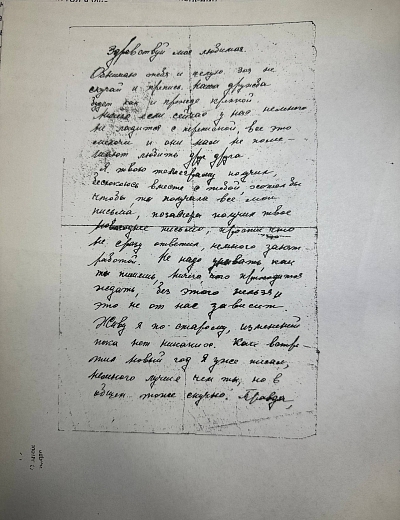 Здравствуй моя любимая.
Обнимаю тебя и целую. Зоя не
скучай и прошу, наша дружба
будет как и прежде крепкой
ничего если сейчас у нас немного
не ладится с перепиской, все это
мелочи и они нам не поме-
шают любить друг друга
Я твою телеграмму получил,
беспокоюсь вместе с тобой, хотел бы
чтобы ты получила все мои
письма, позавчера получил твое
письмо, прости что
не сразу ответил, немного занят
работой. Не надо как
ты пишешь, ничего что приходится
ждать, без этого нельзя и
это не от нас зависит.
Живу я по-старому, изменений
пока нет никаких. Как встре-
тил новый год я уже писал,
немного лучше чем ты, но в
общем тоже скучно. Правда,